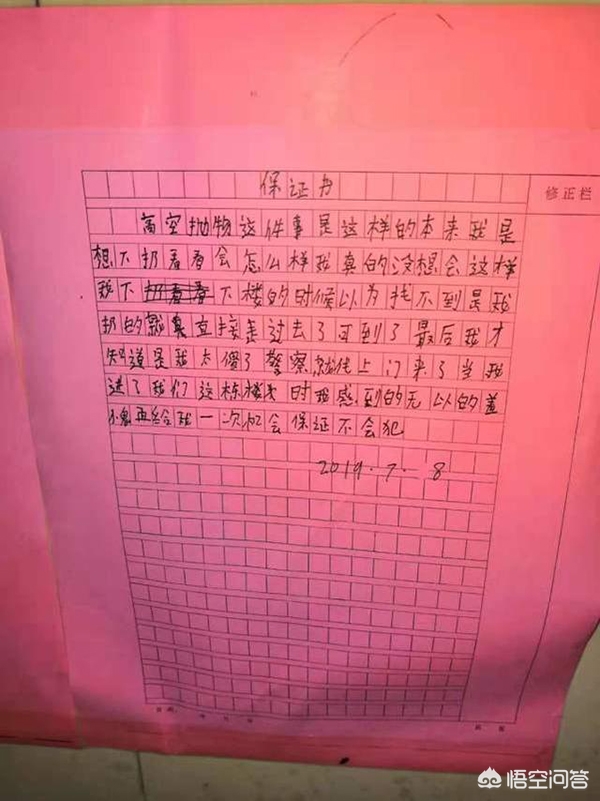 保证书
修正栏
高空抛物这件事是这样的本来我是
想下扔看看会怎么样我真的没想会这样
我下扔看看下楼的时候以为找不到是我
扔的就直接走过去了可到了最后我才
知道是我太傻了警察就找上门来了当我
进了我们这栋楼时我感到的无以的羞
愧再给我一次机会保证不会犯
2019.7.8
悟空问答